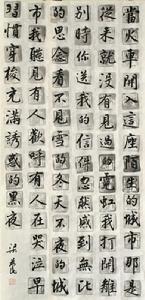 當火車開入這座陌生的城市那是
從來就沒有看過的霓虹我打開離
別時你送我的信件忽然感到無比
的思念看不見雪的冬天不夜的城
市我聽見有人歡呼有人在哭泣早
習慣穿梭充滿誘惑的黑夜